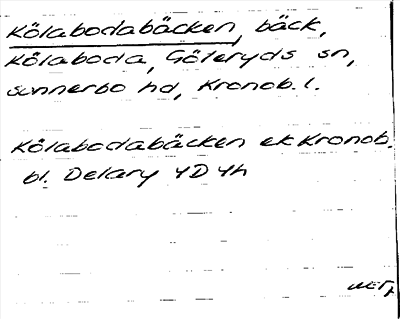 Kölabodabäcken, bäck,
Kölaboda, Göteryds sn,
Sunnerbo hd, Kronob. l.
Kölabodabäcken ek Kronob.
bl. Delary 4D 4h